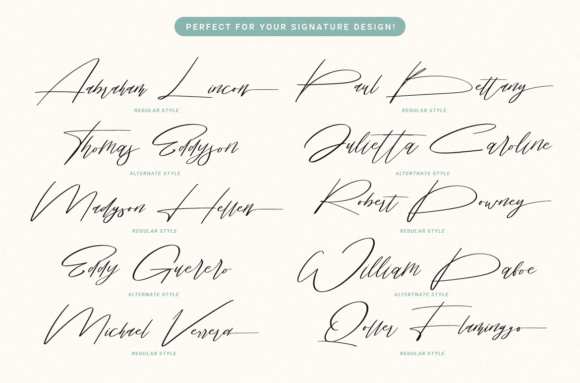 PERFECT FOR YOUR SIGNATURE DESIGN!
Aabraham Lincon
REGULAR STYLE
Paul Bettany
REGULAR STYLE
Thomas Eddyson
ALTERNATE STYLE
Julietta Caroline
ALTERTNATE STYLE
Madyson Hellen
REGULAR STYLE
Robert Downey
REGULAR STYLE
Eddy Guerero
ALTERTNATE STYLE
William Dafoe
ALTERTNATE STYLE
Michael Verrera
REGULAR STYLE
Flaminggo
REGULAR STYLE